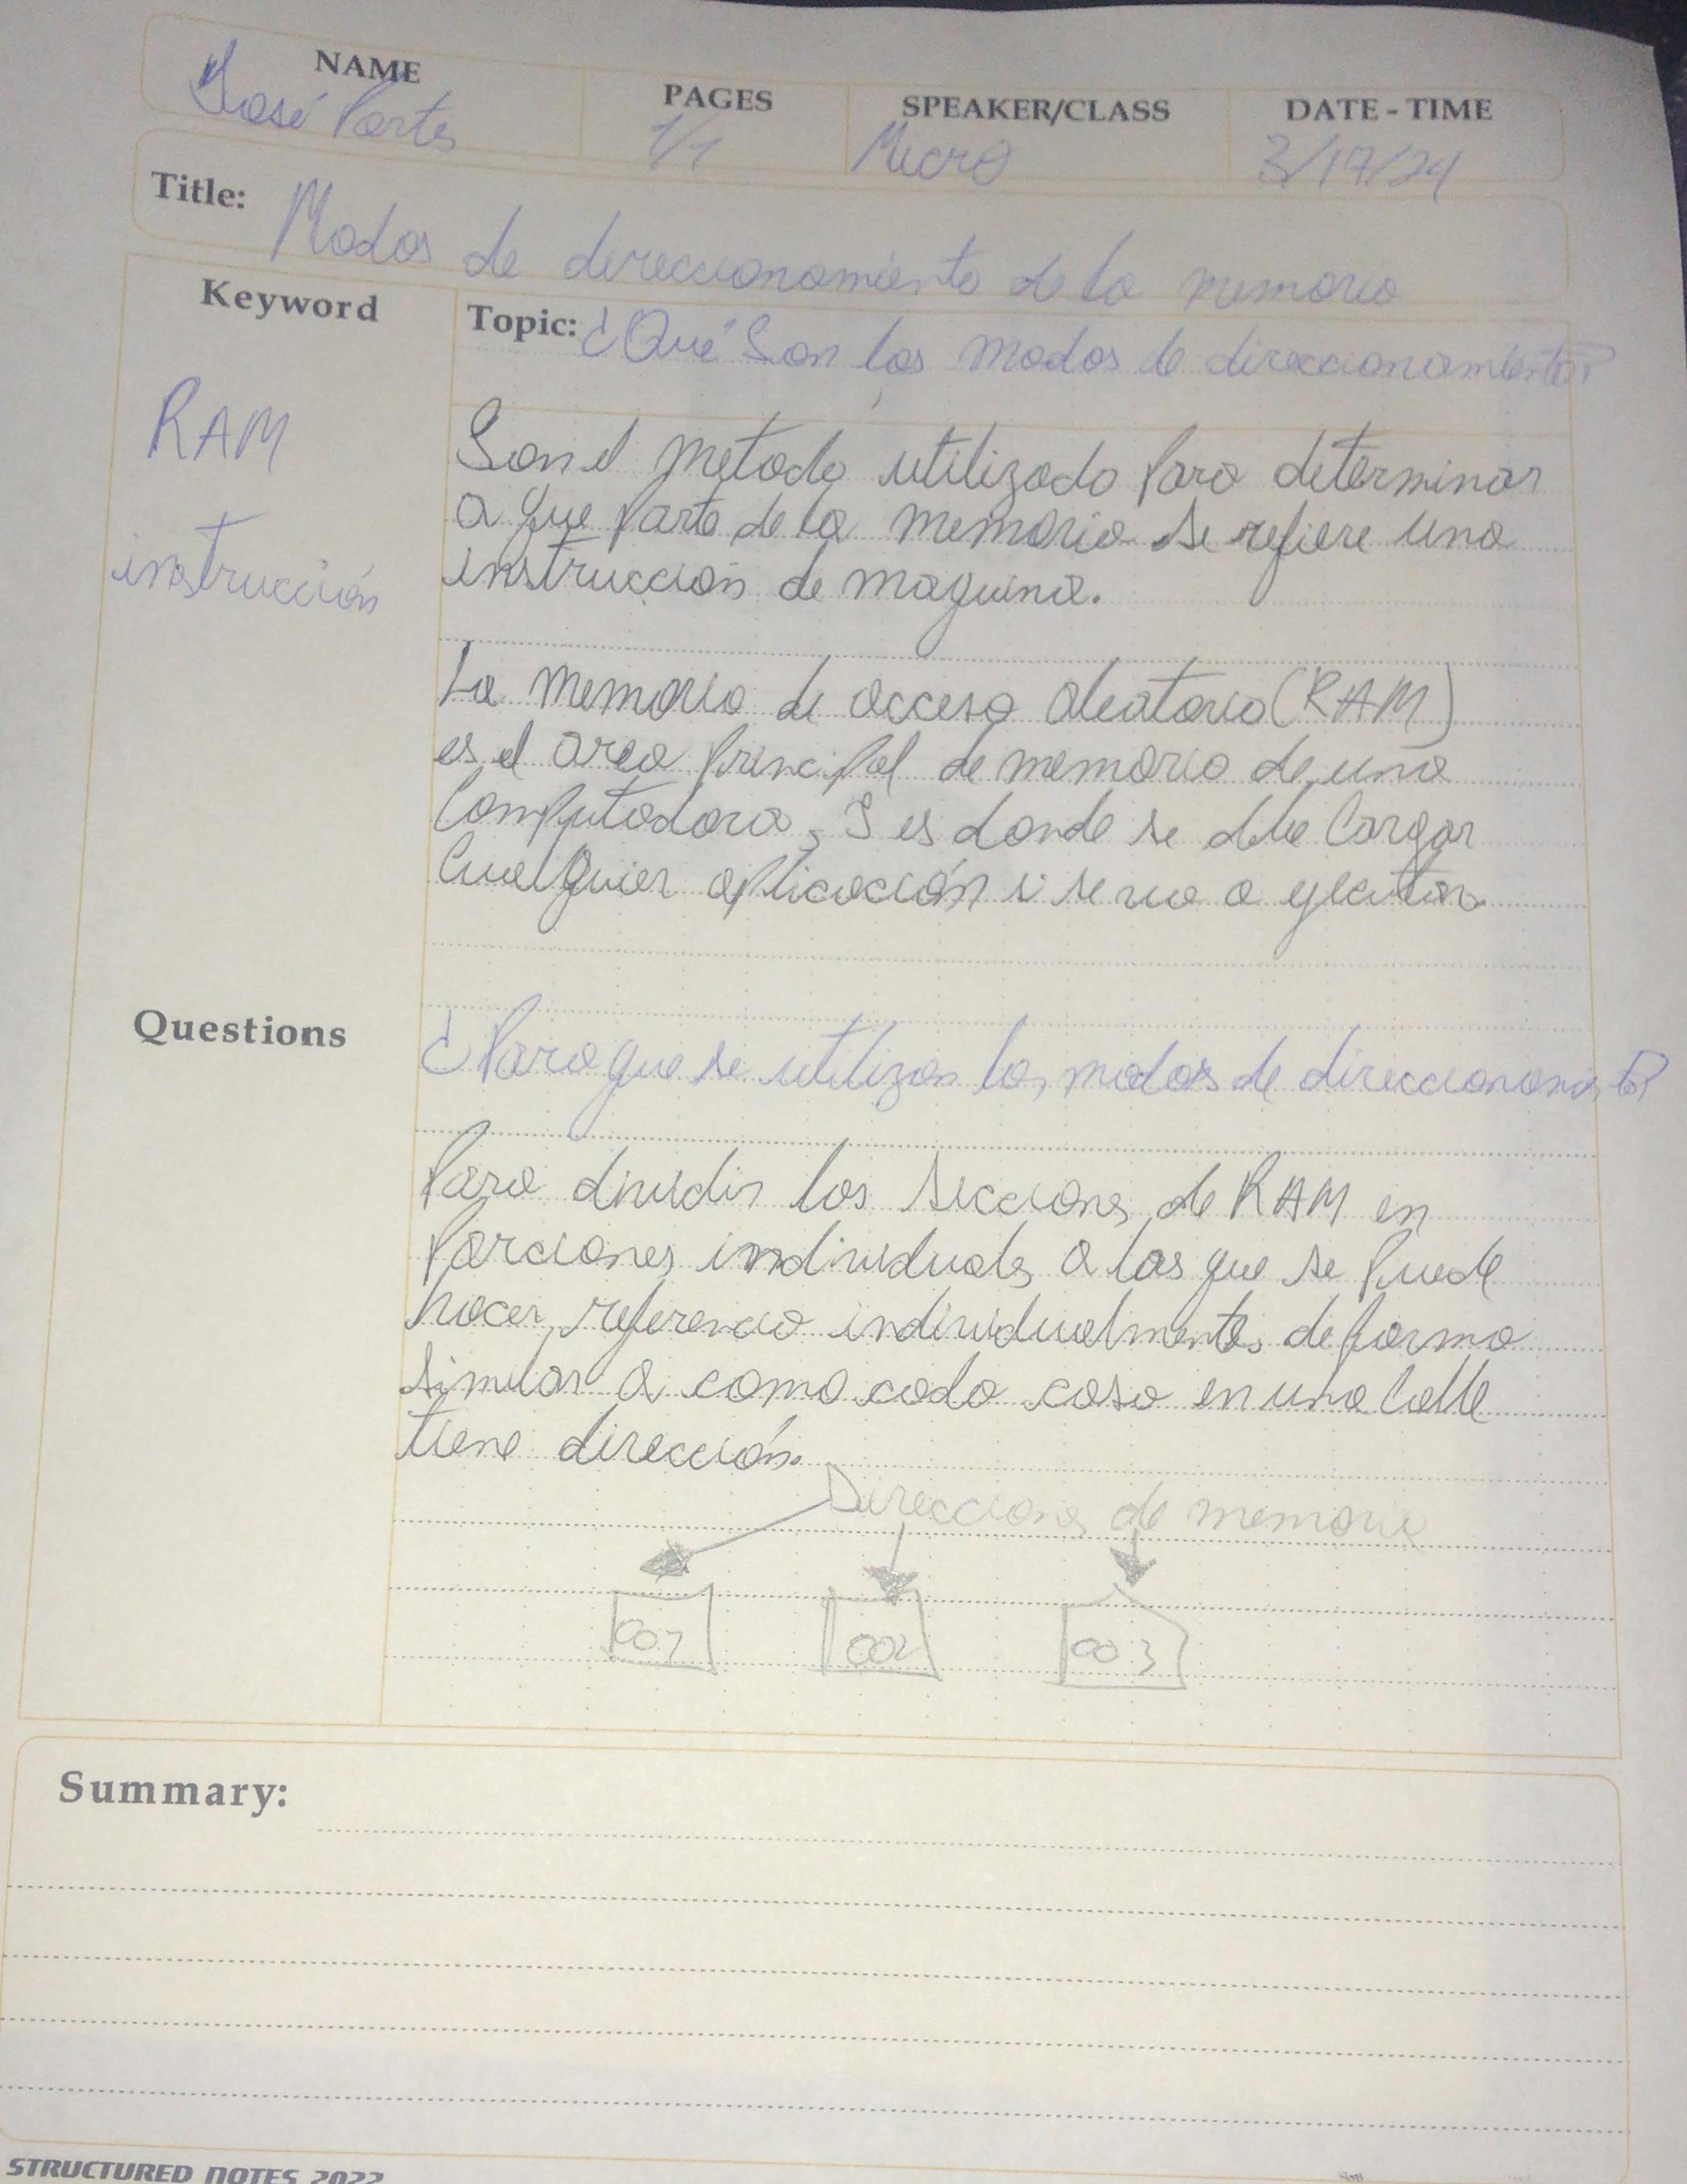 NAME
José Portes
PAGES
1/1
SPEAKER/CLASS
Micro
DATE - TIME
3/17/24
Title: Modos de direccionamiento de la memoria
Keyword
RAM
instrucción
Topic: ¿Qué Son los modos de direccionamiento?
Son el metodo utilizado para determinar
a que parte de la memoria se refiere una
instruccion de maquina.
La memoria de acceso aleatorio (RAM)
es el area principal de memoria de una
Computadora, y es donde se debe Cargar
Cualquier aplicación si se va a ejecutar.
Questions
¿Para que se utilizan los modos de direccionamiento?
Para dividir las secciones de RAM en
Porciones individuales a las que se puede
hacer referencia individualmente, de forma
similar a como cada casa en una Calle
tiene dirección.
Direcciones de memoria
001 002 003
Summary:
STRUCTURED NOTES 2022